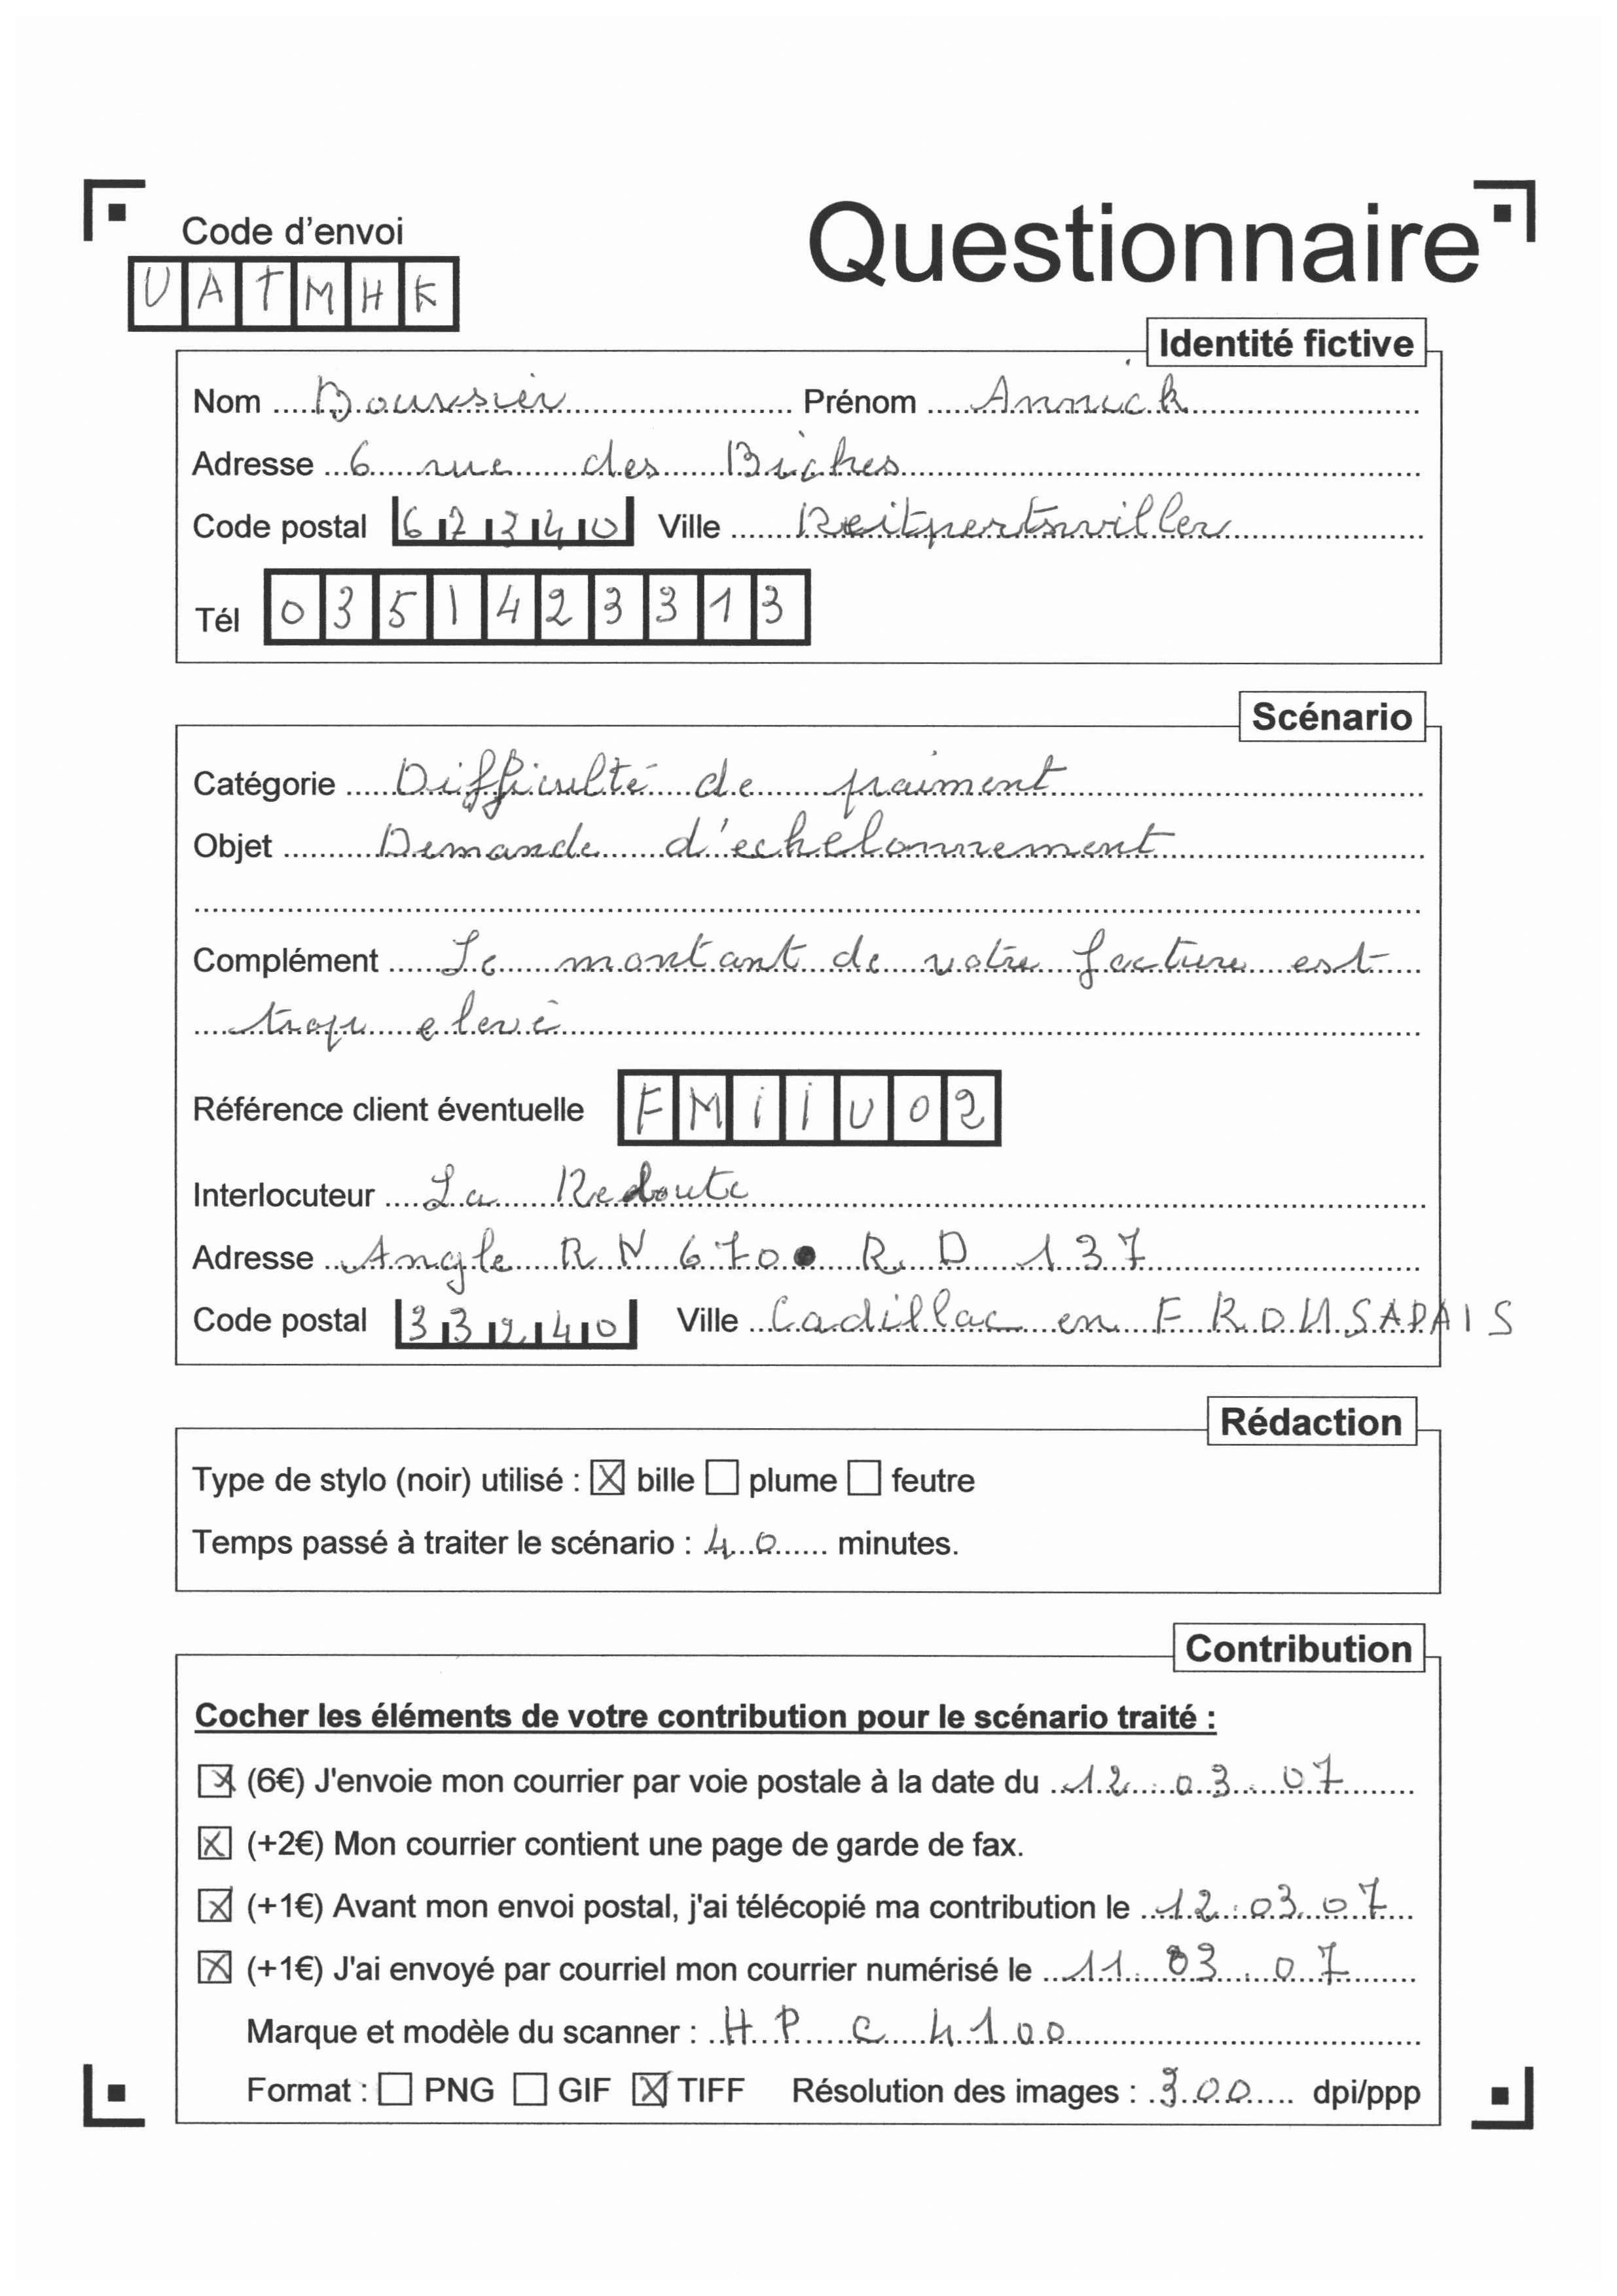 Questionnaire
Code d'envoi
UATMHK
Identité fictive
Nom Boursier Prénom Annick
Adresse 6 rue des Biches
Code postal 67340 Ville Reitpertswiller
Tél 0351423313
Scénario
Catégorie Difficulté de paiment
Objet Demande d'echelonnement
Complément Le montant de votre facture est
trop elevé
Référence client éventuelle FMiiU02
Interlocuteur La Redoute
Adresse Angle RN 670 RD 137
Code postal 33240 Ville Cadillac en
Rédaction
Type de stylo (noir) utilisé : bille plume feutre
Temps passé à traiter le scénario : 40 minutes.
Contribution
Cocher les éléments de votre contribution pour le scénario traité :
(6€) J'envoie mon courrier par voie postale à la date du 12.03.07
(+2€) Mon courrier contient une page de garde de fax.
(+1€) Avant mon envoi postal, j'ai télécopié ma contribution le 12.03.07
(+1€) J'ai envoyé par courriel mon courrier numérisé le 11.03.07
Marque et modèle du scanner : HP C 4100
Format : PNG GIF TIFF Résolution des images : 300 dpi/ppp